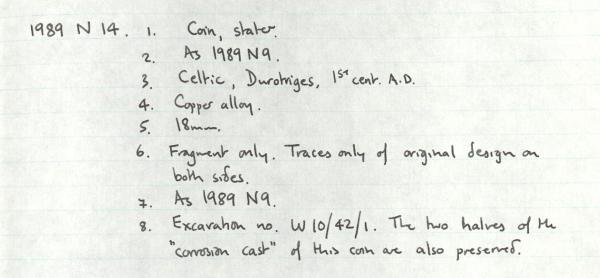 1989 N 14. 1. Coin, stater.
2. As 1989 N9.
3. Celtic, Durotriges, 1st cent. A.D.
4. Copper alloy.
5. 18mm.
6. Fragment only. Traces only of original design on
both sides.
7. As 1989 N9.
8. Excavation no. W10/42/1. The two halves of the
"corrosion cast" of this coin are also preserved.